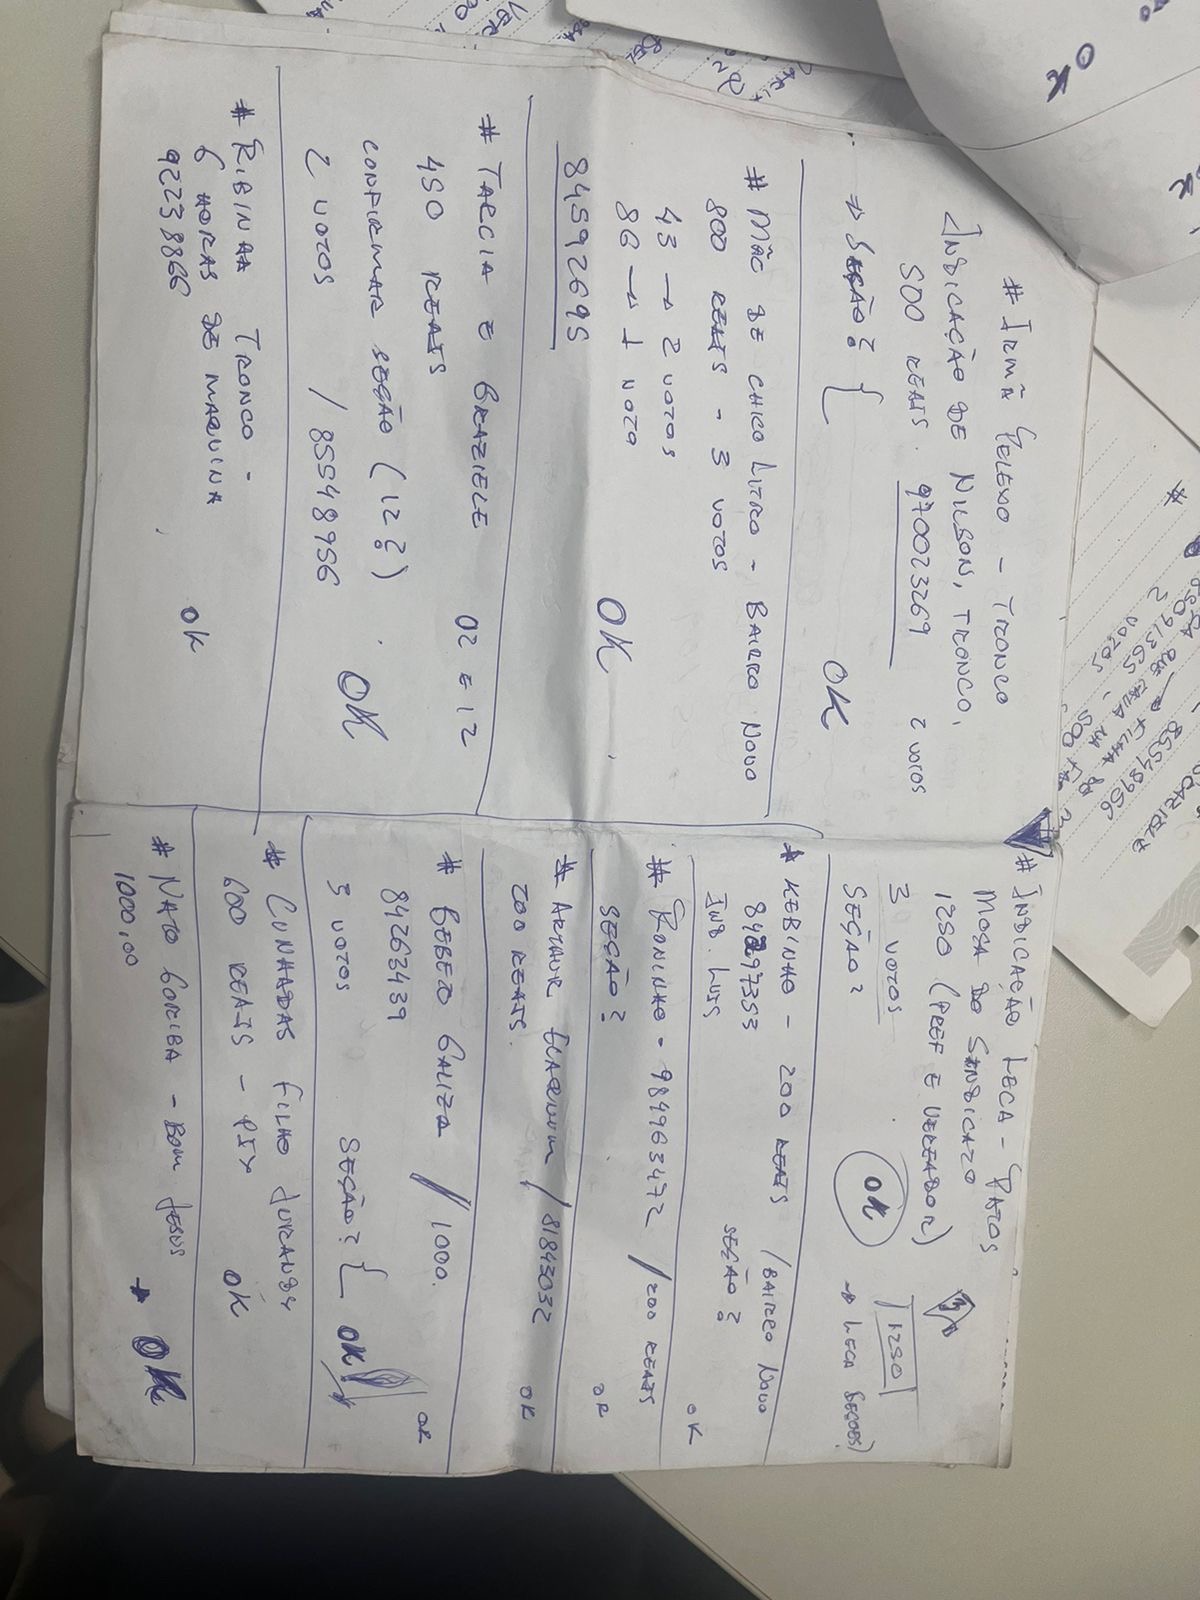 # IRMÃ GELEXO - TRONCO
INDICAÇÃO DE NILSON, TRONCO,
500 REAIS. 970023269 2 VOTOS
→ SEÇÃO? {
OK
# MÃE DE CHICO LITRO - BAIRRO NOVO
800 REAIS - 3 VOTOS
43 → 2 VOTOS
86 → 1 VOTO
OK
84592695
# TARCIA E GRAZIELE 02 E 12
450 REAIS
CONFIRMAR SEÇÃO (12?)
2 VOTOS / 85548956
OK
# RIBINHA TRONCO -
6 HORAS DE MAQUINA
92238866
OK
# INDICAÇÃO LECA - PATOS
MOSA DO SINDICATO
1250 (PREF E VEREADOR)
3 VOTOS
SEÇÃO?
OK
1250
→ LECA SEÇOES)
* KEBINHO - 200 REAIS / BAIRRO NOVO
IND. LUIS SEÇÃO?
OK
# RONINHO - 984963472 / 200 REAIS
SEÇÃO?
OK
# ARTHUR / 81843032
200 REAIS.
OK
# BEBETO GALIZA / 1000.
84263439
3 VOTOS SEÇÃO? { OK
OK
# CUNHADAS FILHO JURANDY
600 REAIS - PIX OK
# NATO GORIBA - BOM JESUS
1000,00
→ OK
OK
85548956
2 VOTOS